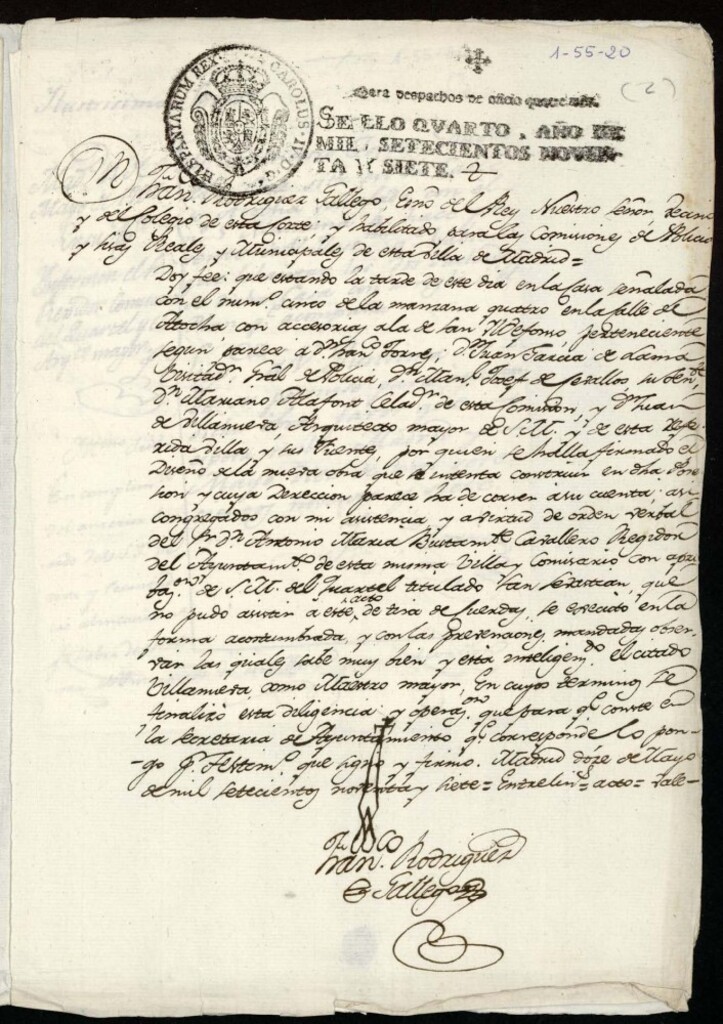 1-55-20
(2)
HISPANIARUM REX CAROLUS IV D G
Para despachos de oficio quatro mrs.
SELLO QVARTO, AÑO DE
MIL SETECIENTOS NOVEN-
TA Y SIETE.
Franco. Rodriguez Gallego, Esno del Rey Nuestro Señor,
y del Colegio de esta Corte, y havilitado para las Comisiones de Policia
y Reales y Municipales de esta Villa de Madrid=
Doy fee: que estando la tarde de este dia en la Casa señalada
con el numo. cinco de la manzana quatro en la Calle de
Atocha con accesorias a la de San Ildefonso perteneciente
segun parece a Dn. Franco. Torres; Dn. Juan Garcia de Lama
Visitadr. Gral de Policia, Dn. Manl. Josef de Cevallos, su
Dn. Mariano Alafont Celadr. de esta Comision, y Dn. Juan
de Villanueva Arquitecto mayor de S.M. y de esta refe-
rida Villa y su Theniente, por quien se halla firmado el
Diseño de la nueva obra que se intenta construir en dha Pose-
sion y cuya Dereccion parece ha de correr a su cuenta; asi
congregados con mi asistencia y a virtud de orden verbal
del Sr. Dn. Antonio Maria Bustamte. Cavallero Regidor
del Ayuntamto. de esta misma Villa y Comisario con apro-
bazon. de S.M. del Quartel titulado San Sebastian, que
no pudo asistir a este acto, de tira de Cuerdas, se executó en la
forma acostumbrada, y con las prevenciones mandadas obser-
var las quales sabe muy bien y está inteligendo. el citado
Villanueva como Maestro mayor, En cuyos terminos se
finalizó esta diligencia y operazon. que para qe. conste en
la Secretaria de Ayuntamiento qe. corresponde lo pon-
go pr. Testimo. que signo y firmo. Madrid doze de Mayo
de mil setecientos noventa y siete= Entrelins.= acto= Vale-
Franco. Rodriguez
Gallego